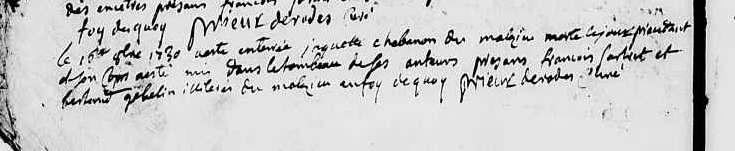 des encetres presans francois
foy dequoy prieur derodes curé
le 16me 8bre 1730 aeste enterrée jaquette chabanon du malzieu morte lejour praecedant
et son corps aesté mis dans letombeau deses auteurs presans francois et
bertrand gibelin illiteres du malzieu enfoy dequoy prieur derodes curé